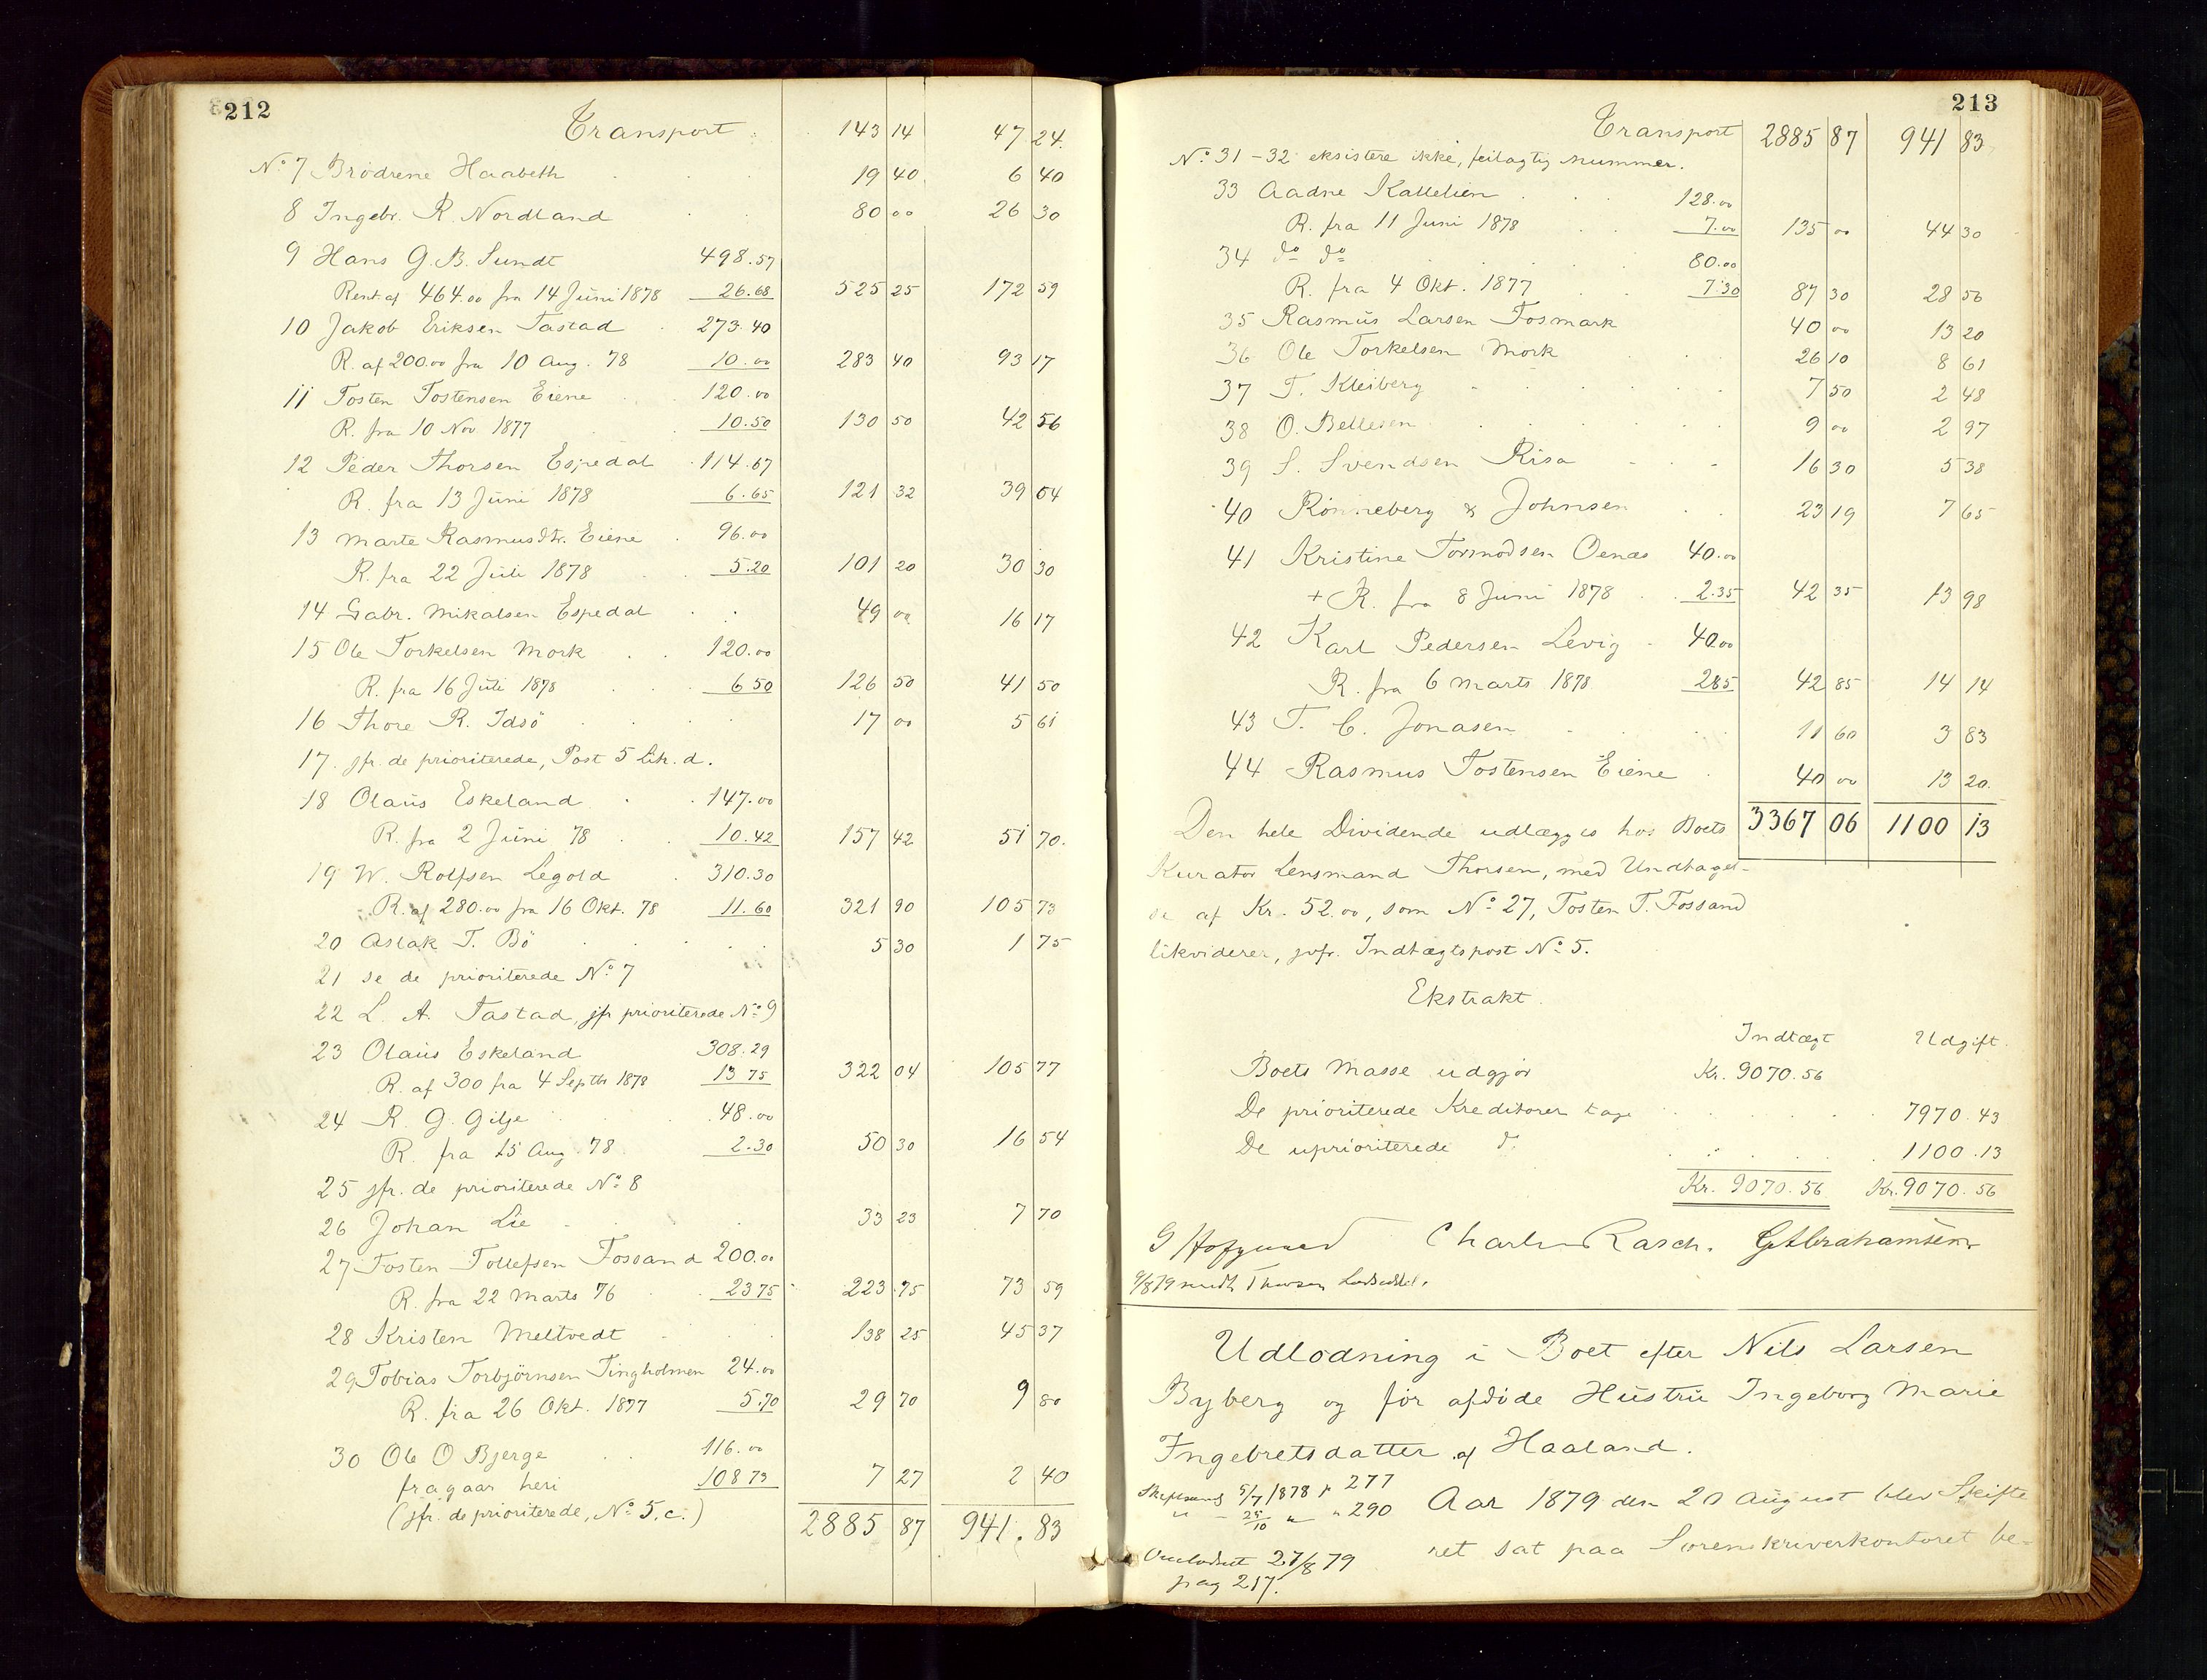 212
Transport 143 14 47 24
No 7 Brödrene Haabeth 19 40 6 40
8 Ingebr. R. Nordland 80 00 26 30
9 Hans G. B. Sundt 498.57
Rent. af 464.00 fra 14 Juni 1878 26.68 525 25 172 59
10 Jakob Eriksen Tastad 273.40
R. af 200.00 fra 10 Aug. 78 10.00 283 40 93 17
11 Tosten Tostensen Eiene 120.00
R. fra 10 Nov 1877 10.50 130 50 42 56
12 Peder Thorsen Espedal 114.67
R. fra 13 Juni 1878 6.65 121 32 39 04
13 Marte Rasmusdtr. Eiene 96.00
R. fra 22 Juli 1878 5.20 101 20 30 30
14 Gabr. Mikalsen Espedal 49 00 16 17
15 Ole Torkelsen Mork 120.00
R. fra 16 Juli 1878 6 50 126 50 41 50
16 Thore R. Idsö 17 00 5 61
17 jfr. de prioriterede, Post 5 Lit. d.
18 Olaus Eskeland 147.00
R. fra 2 Juni 78 10.42 157 42 51 70
19 W. Rolfsen Legold 310.30
R. af 280.00 fra 16 Okt. 78 11.60 321 90 105 73
20 Aslak T. Bö 5 30 1 75
21 se de prioriterede No 7
22 L. A. Tastad, jfr prioriterede No 9
23 Olaus Eskeland 308.29
R. af 300 fra 4 Septbr 1878 13 75 322 04 105 77
24 R. G. Gilje 48.00
R. fra 15 Aug. 78 2.30 50 30 16 54
25 jfr. de prioriterede No 8
26 Johan Lie 33 23 7 70
27 Tosten Tollefsen Fossand 200.00
R. fra 22 Marts 76 23 75 223 75 73 59
28 Kristen Meltvedt 138 25 45 37
29 Tobias Torbjörnsen Tingholmen 24.00
R. fra 26 Okt. 1877 5.70 29 70 9 80
30 Ole O Bjerge 116.00
fragaar heri 108 73 7 27 2 40
(jfr. de prioriterede, No 5. c.)
2885 87 941.83
213
Transport 2885 87 941 83
No 31-32 eksistere ikke, feilagtig Nummer.
33 Aadne Kallelien 128.00
R. fra 11 Juni 1878 7.00 135 00 44 30
34 do do 80.00
R. fra 4 Okt. 1877 7.30 87 30 28 56
35 Rasmus Larsen Fosmark 40 00 13 20
36 Ole Torkelsen Mork 26 10 8 61
37 T. Kleiberg 7 50 2 48
38 O. Bellesen 9 00 2 97
39 S. Svendsen Risa 16 30 5 38
40 Rönneberg & Johnsen 23 19 7 65
41 Kristine Tormodsen Oenas 40.00
+ R. fra 8 Juni 1878 2.35 42 35 13 98
42 Karl Pedersen Levig 40.00
R. fra 6 Marts 1878 2.85 42 85 14 14
43 T. C. Jonasen 11 60 3 83
44 Rasmus Tostensen Eiene 40 00 13 20
Den hele Dividende udlægges hos Boets 3367 06 1100 13
Kurator Lensmand Thorsen, med Undtagel-
se af Kr. 52.00, som No 27, Tosten T. Fossand
likviderer, jvfr. Indtægtspost No 5.
Ekstrakt.
Indtægt Udgift
Boets Masse udgjör Kr. 9070.56
De prioriterede Kreditorer tage 7970.43
De uprioriterede do 1100.13
Kr. 9070.56 Kr. 9070.56
Charles Rasch. G Abrahamsen
9/8 79 Thorsen
Udlodning i Boet efter Nils Larsen
Byberg og för afdöde Hustru Ingeborg Marie
Ingebretsdatter af Haaland.
5/7 1878 p 277
25/10 " " 290
Aar 1879 den 20 August blev Skifte
ret sat paa Sorenskriverkontoret be-
27/8 79
pag 217.